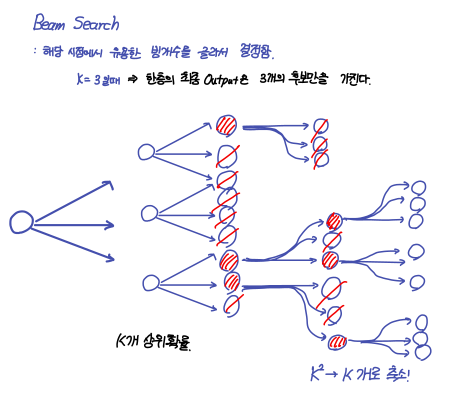 Beam Search
: 해당 시점에서 유용한 빔개수를 골라서 결정함.
K = 3 일때 ⇒ 한층의 최종 Output은 3개의 후보만을 가진다.
K개 상위확률.
K² → K 개로 축소!